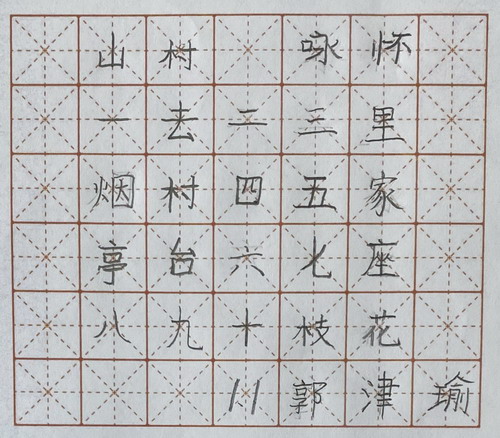 山村 咏怀
一去二三里
烟村四五家
亭台六七座
八九十枝花
11 郭津瑜